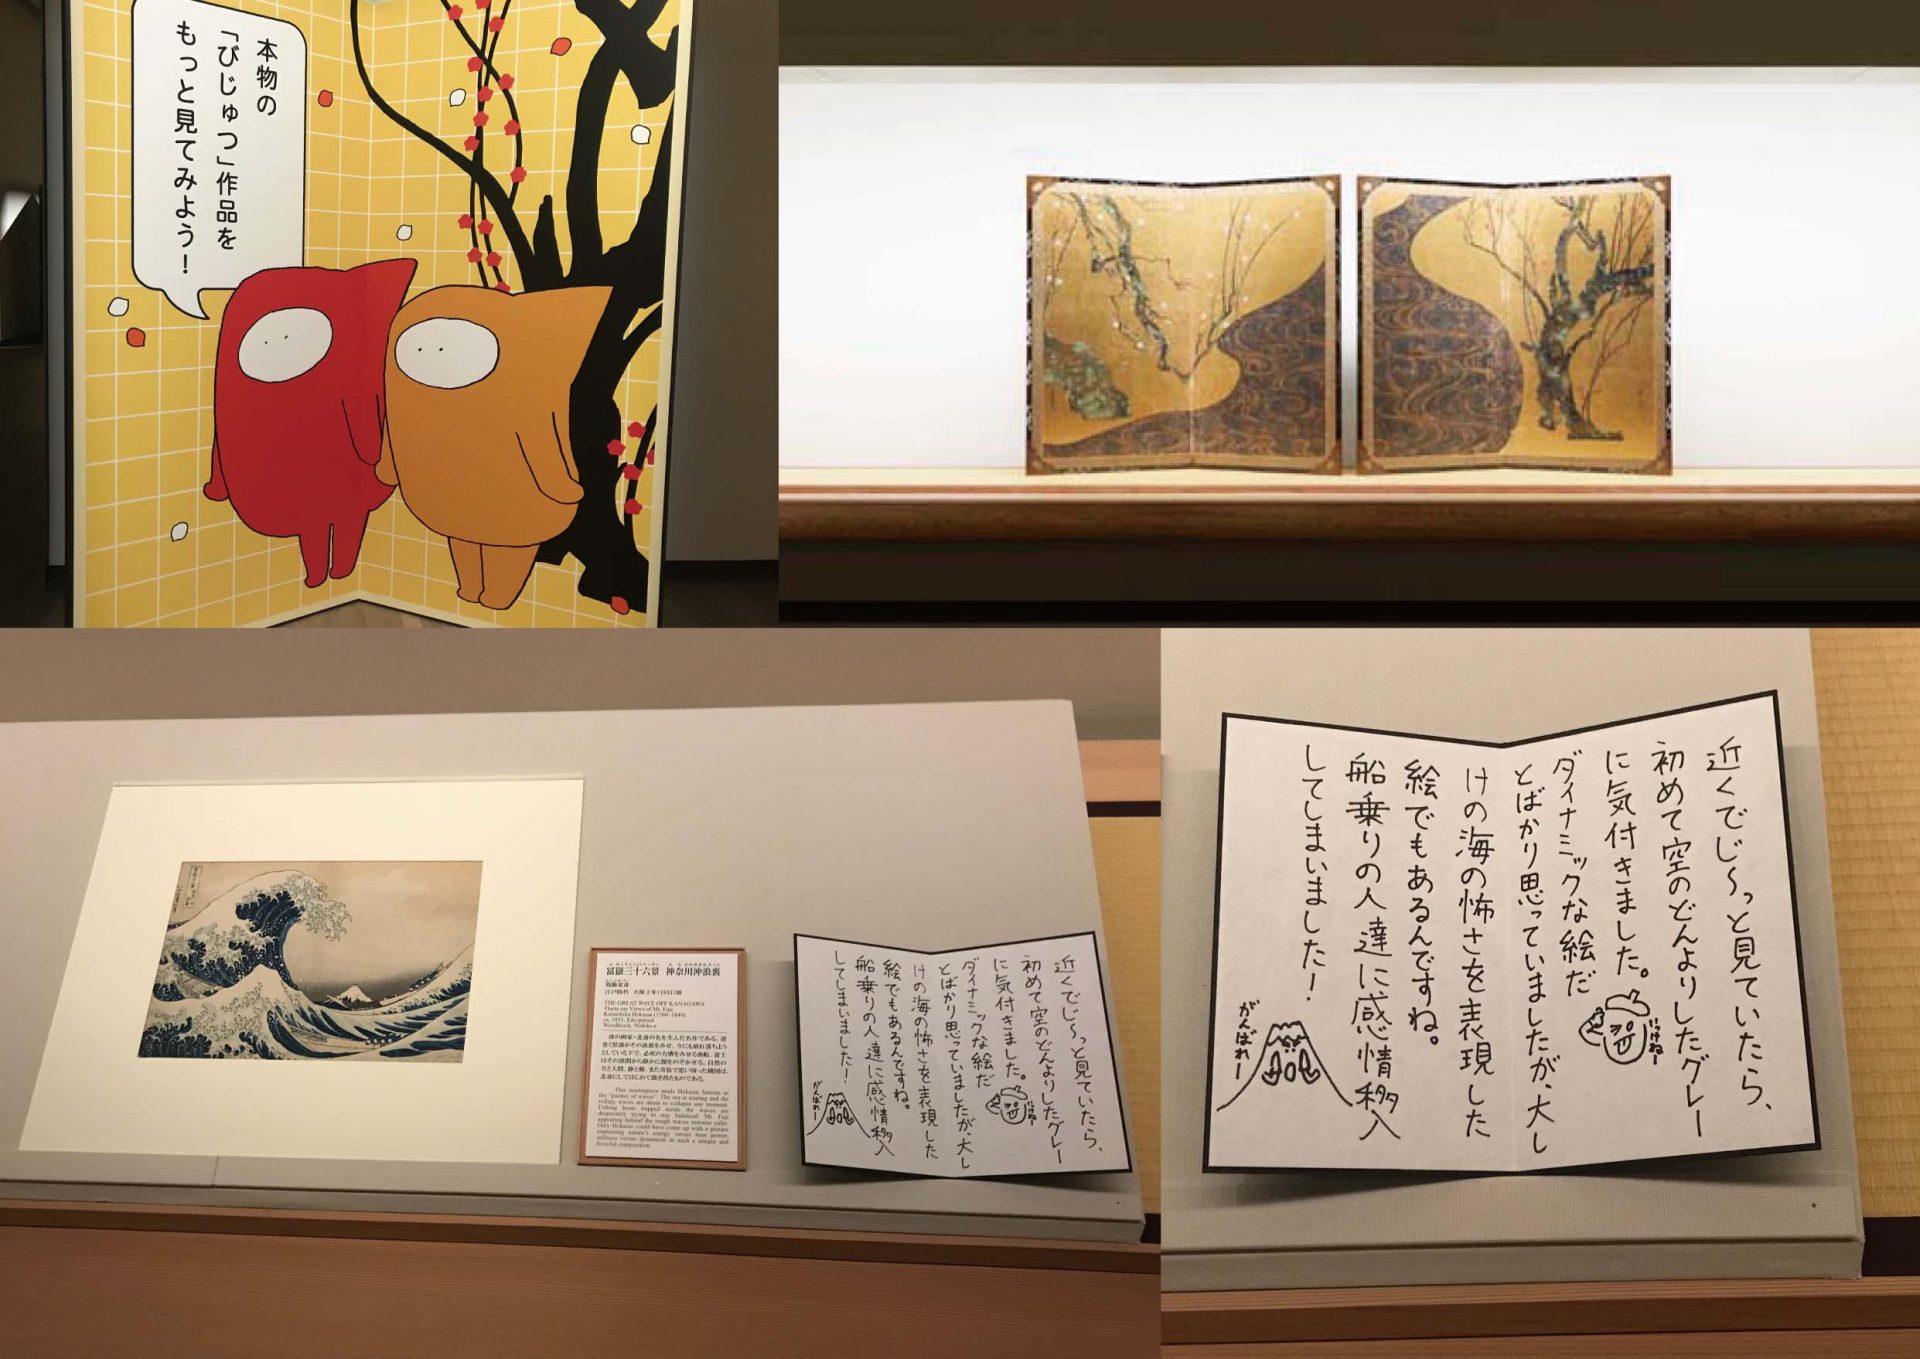 本物の
「びじゅつ」作品を
もっと見てみよう!
冨嶽三十六景　神奈川沖浪裏
葛飾北斎
江戸時代　天保2年(1831)頃
THE GREAT WAVE OFF KANAGAWA
Thirty-six Views of Mt. Fuji
Katsushika Hokusai (1760–1849)
ca. 1831, Edo period
Woodblock, Nishiki-e
This masterpiece made Hokusai famous as
the "painter of waves". The sea is roaring and the
rolling waves are about to collapse any moment.
Fishing boats trapped inside the waves are
desperately trying to stay balanced. Mt. Fuji
appearing behind the rough waves remains calm.
Only Hokusai could have come up with a picture
expressing nature's energy versus man power,
stillness versus dynamism in such a unique and
forceful composition.
近くでじ〜っと見ていたら、
初めて空のどんよりしたグレー
に気付きました。
ダイナミックな絵だ
とばかり思っていましたが、大し
けの海の怖さを表現した
絵でもあるんですね。
船乗りの人達に感情移入
してしまいました!
がんばれー
近くでじ〜っと見ていたら、
初めて空のどんよりしたグレー
に気付きました。
ダイナミックな絵だ
とばかり思っていましたが、大し
けの海の怖さを表現した
絵でもあるんですね。
船乗りの人達に感情移入
してしまいました!
がんばれー